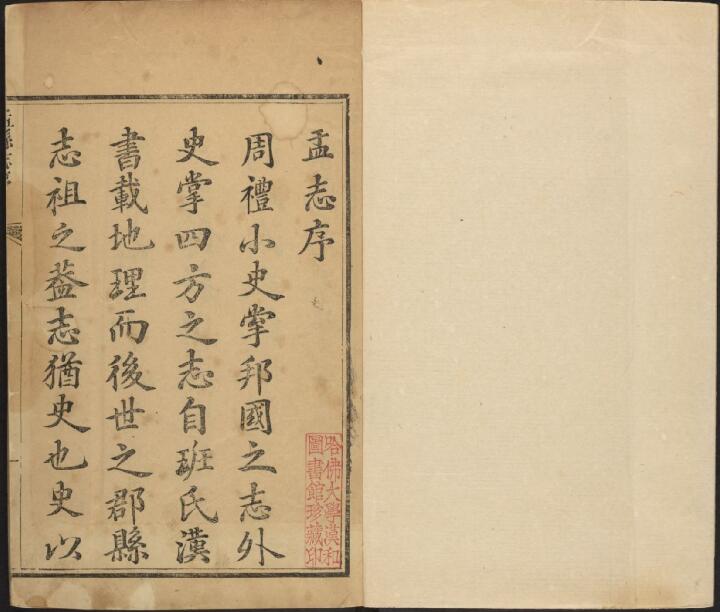 盂志序
周禮小史掌邦國之志外
史掌四方之志自班氏漢
書載地理而後世之郡縣
志祖之葢志猶史也史以
哈佛大學漢和
圖書館珍藏印